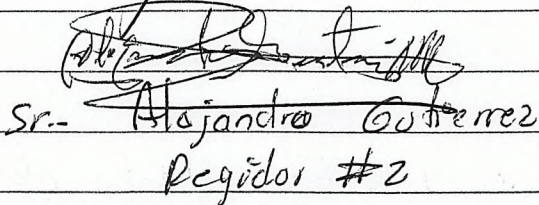 Sr.- Alejandro Gutierrez
Regidor #2